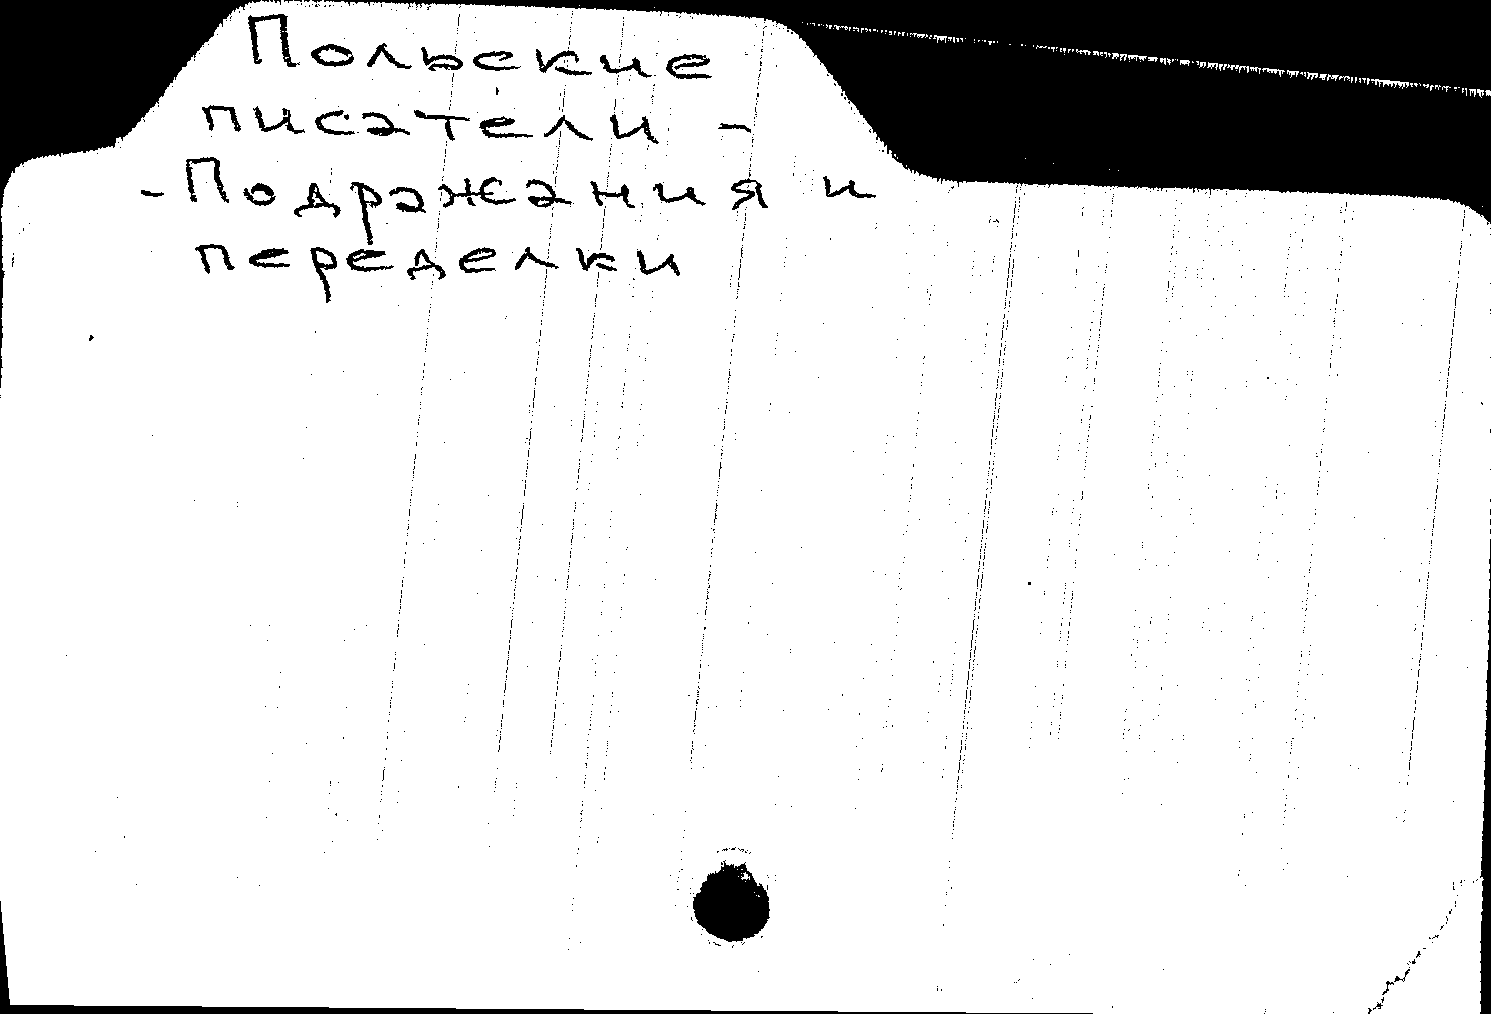 Польские
писатели -
- Подражания и
переделки